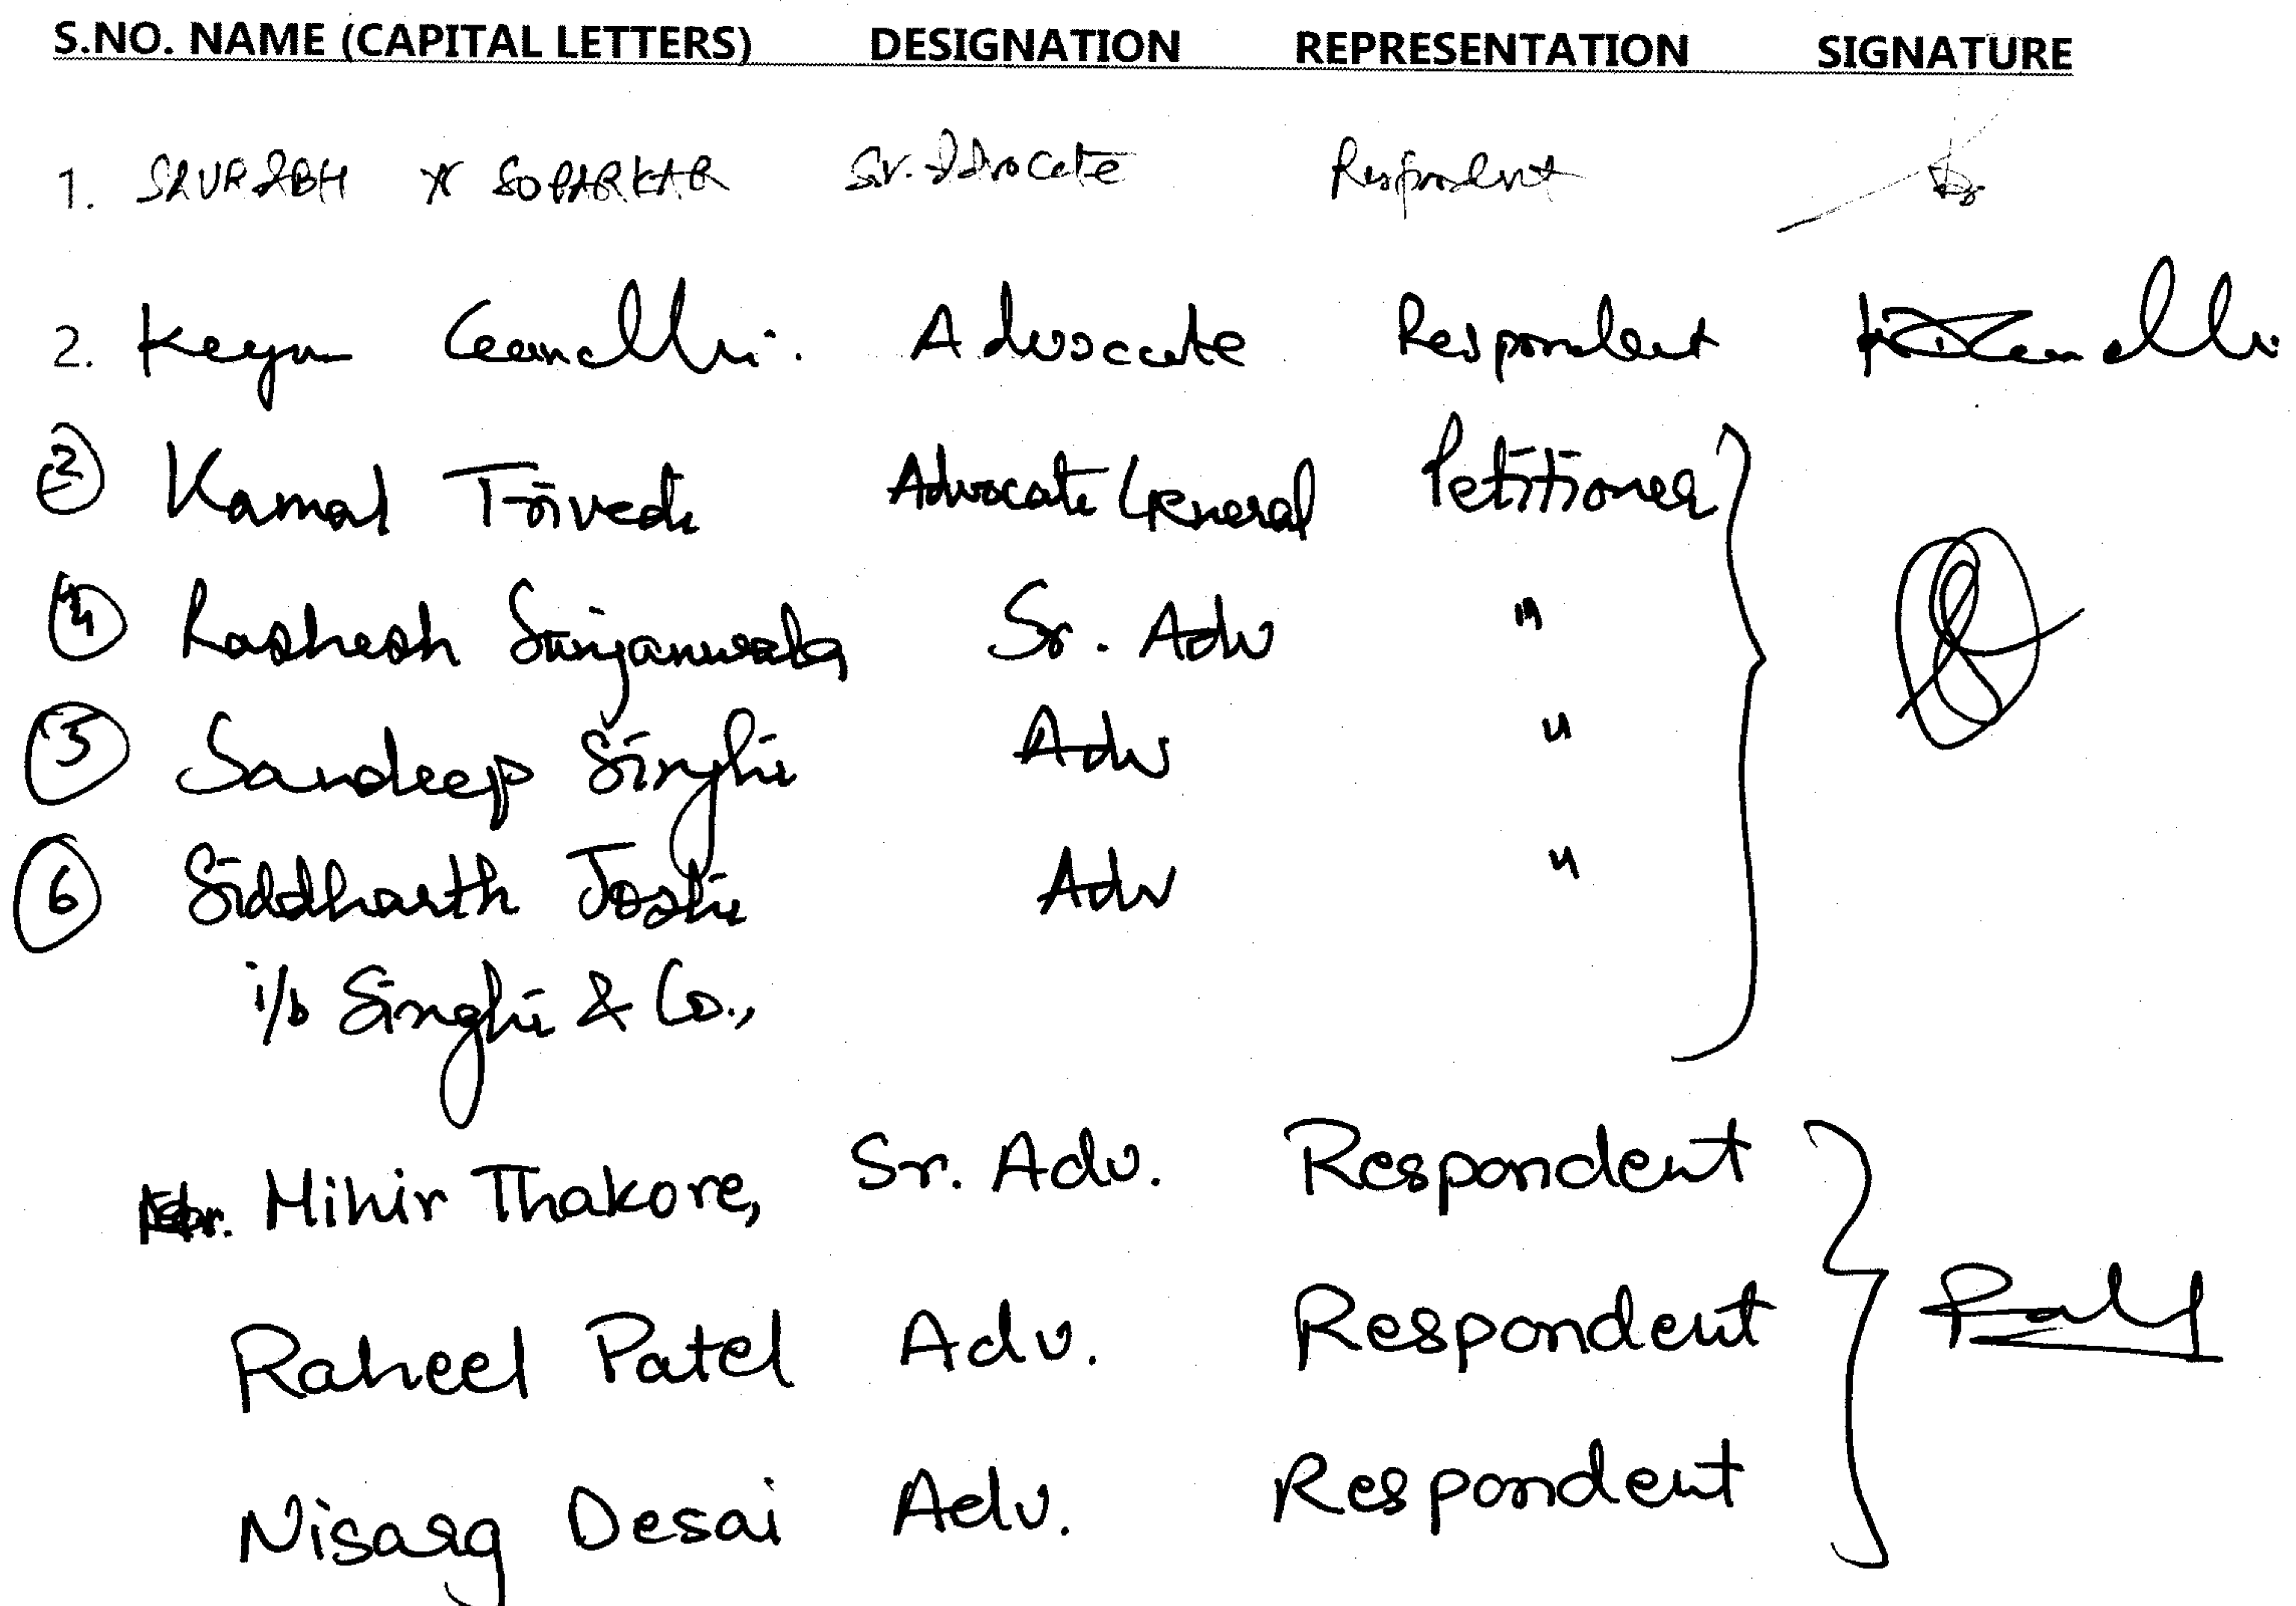 S.NO. NAME (CAPITAL LETTERS) DESIGNATION REPRESENTATION SIGNATURE
1. SAURABH N SOPARKAR Sr. Advocate Respondent
2. Keyur Gandhi. Advocate Respondent
3 Kamal Trivedi Advocate General Petitioner
4 Rashesh Sanjanwala Sr. Adv "
5 Sandeep Singhi Adv "
6 Siddharth Joshi Adv "
i/b Singhi & Co.,
Mihir Thakore, Sr. Adv. Respondent
Raheel Patel Adv. Respondent
Nisarg Desai Adv. Respondent